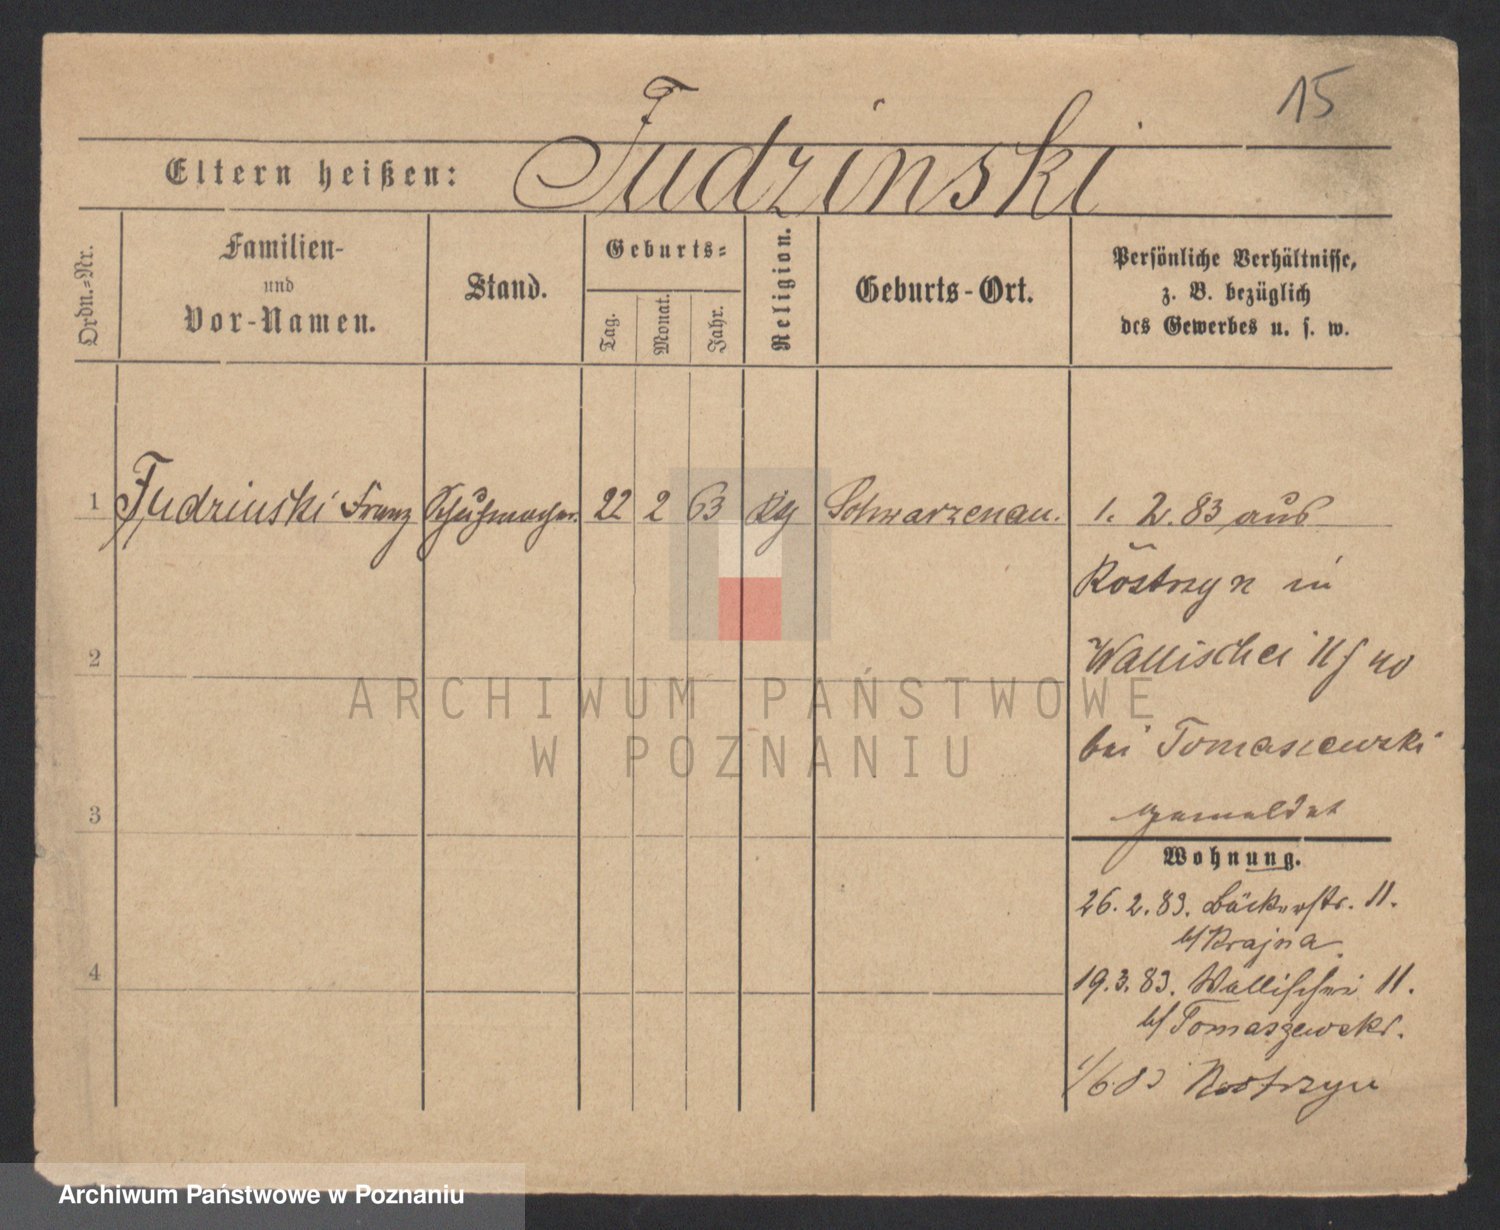 15
Eltern heißen: Judzinski
Ordn.-Nr.
Familien-
und
Vor-Namen.
Stand.
Geburts-
Tag.
Monat.
Jahr.
Religion.
Geburts-Ort.
Persönliche Verhältnisse,
z. B. bezüglich
des Gewerbes u. s. w.
1 Judzinski Franz Schuhmacher. 22 2 63 Schwarzenau. 1. 2. 83 aus
Kostrzyn in
Wallischei
bei Tomasiewski
gemeldet
2
3
4
Wohnung.
26. 2. 83. Bäckerstr. 11.
b/ Krajna
19. 3. 83. Wallischei 11.
b/ Tomaszewski.
1/6 83 Kostrzyn
ARCHIWUM PAŃSTWOWE
W POZNANIU
Archiwum Państwowe w Poznaniu